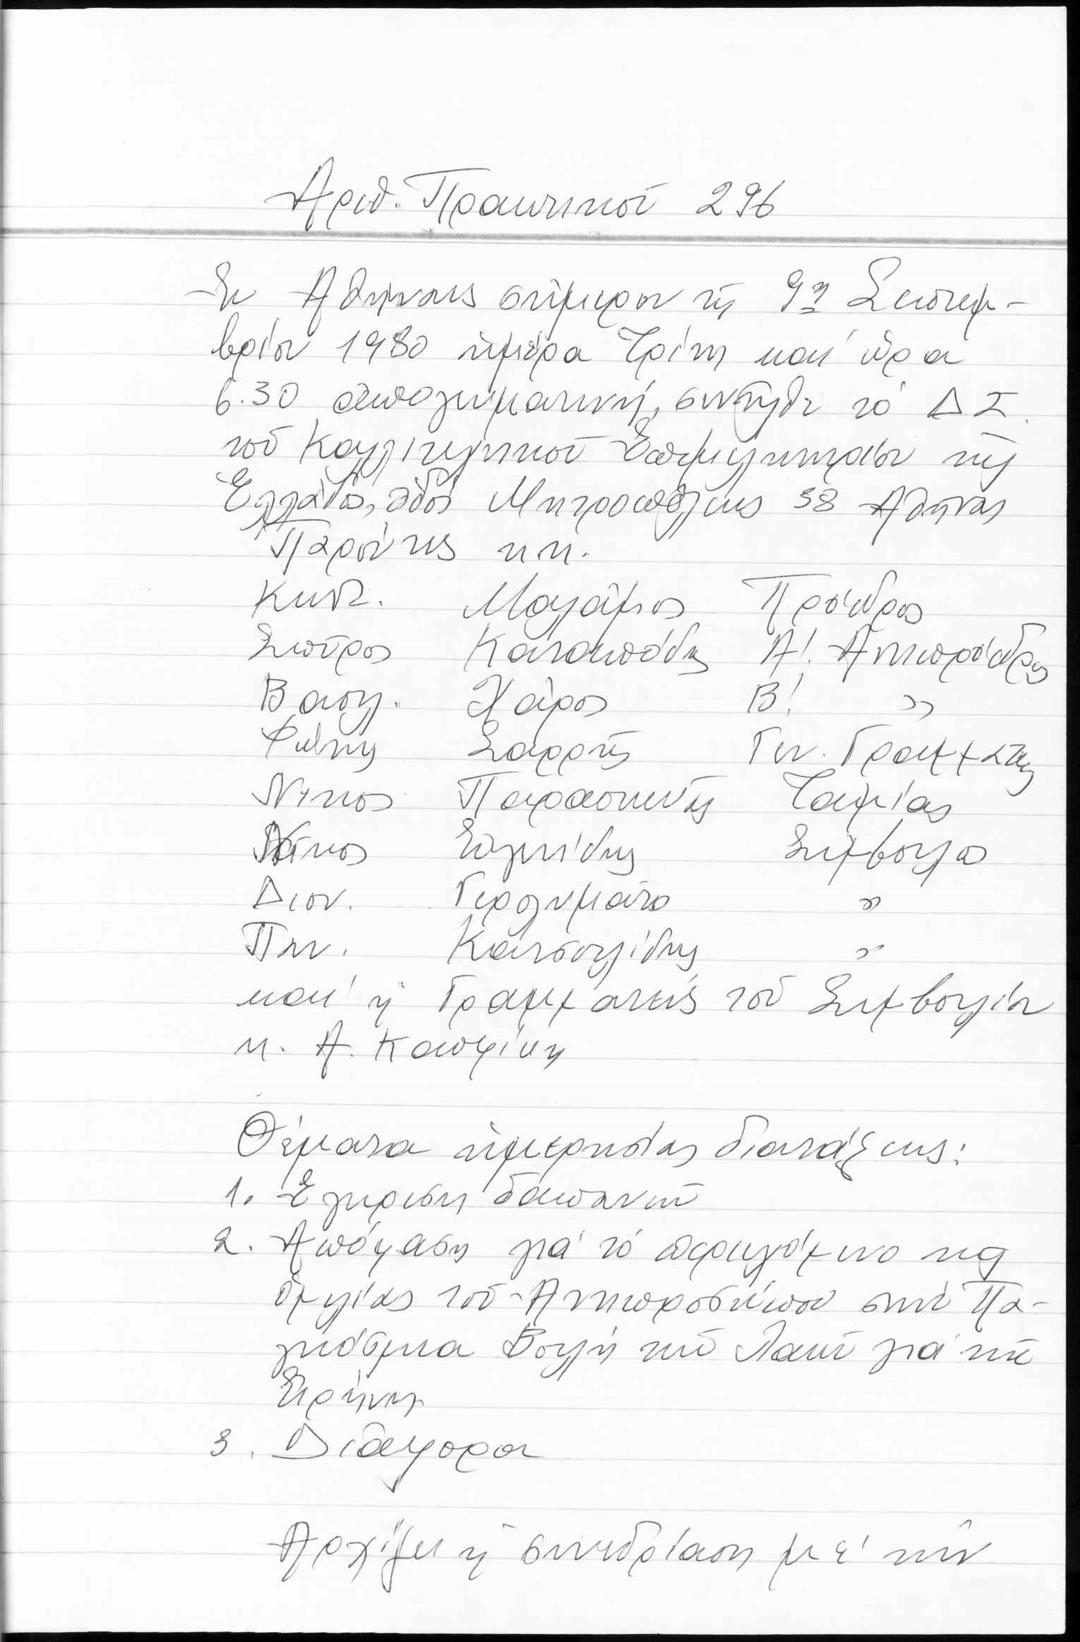 Ἀριθ. Πρακτικοῦ 296
Ἐν Ἀθήναις σήμερον τῇ 9ῃ Σεπτεμ-
βρίου 1980 ἡμέρα Τρίτη καί ὥρα
6.30 ἀπογευματινή, συνῆλθε τό Δ Σ.
τοῦ Καλλιτεχνικοῦ Ἐπιμελητηρίου τῆς
Ἑλλάδος, ὁδός Μητροπόλεως 38 Ἀθήνας
Παρόντες κκ.
Κωστ. Μαλάμος Πρόεδρος
Σπῦρος Καταπόδης Α! Ἀντιπρόεδρος
Βασιλ. Χάρος Β! "
Φώτης Σαρρῆς Γεν. Γραμματεύς
Νῖκος Παρασκευᾶς Ταμίας
Νῖκος Εὐγενίδης Σύμβουλος
Διον. Γερολυμάτος "
Πην. Κατσουλίδης "
καί ἡ Γραμματεύς τοῦ Συμβουλίου
κ. Α. Καψάκη
Θέματα ἡμερησίας διατάξεως:
1. Ἔγκριση δαπανῶν
2. Ἀπόφαση γιά τό περιεχόμενο τῆς
ὁμιλίας τοῦ Ἀντιπροσώπου στήν Πα-
γκόσμια Βουλή τῶν Λαῶν γιά τήν
Εἰρήνη
3. Διάφορα
Ἀρχίζει ἡ συνεδρίαση μέ τήν